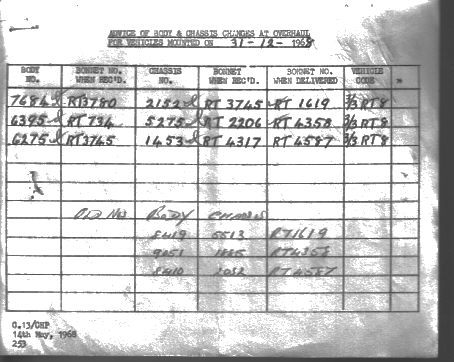 ADVICE OF BODY & CHASSIS CHANGES AT OVERHAUL
FOR VEHICLES MOUNTED ON 31-12-1968
BODY NO. BONNET NO. WHEN REC'D. CHASSIS NO. BONNET WHEN REC'D. BONNET NO. WHEN DELIVERED VEHICLE CODE
7684 RT3780 2152 RT 3745 RT 1619 3/3 RT8
6395 RT 734 5275 RT 2206 RT 4358 3/3 RT8
6275 RT3745 1453 RT 4317 RT 4587 3/3 RT8
OLD NOS BODY CHASSIS
8419 5513 RT1619
9051 1885 RT4358
8410 2032 RT4587
O.13/CHP
14th May, 1968
253